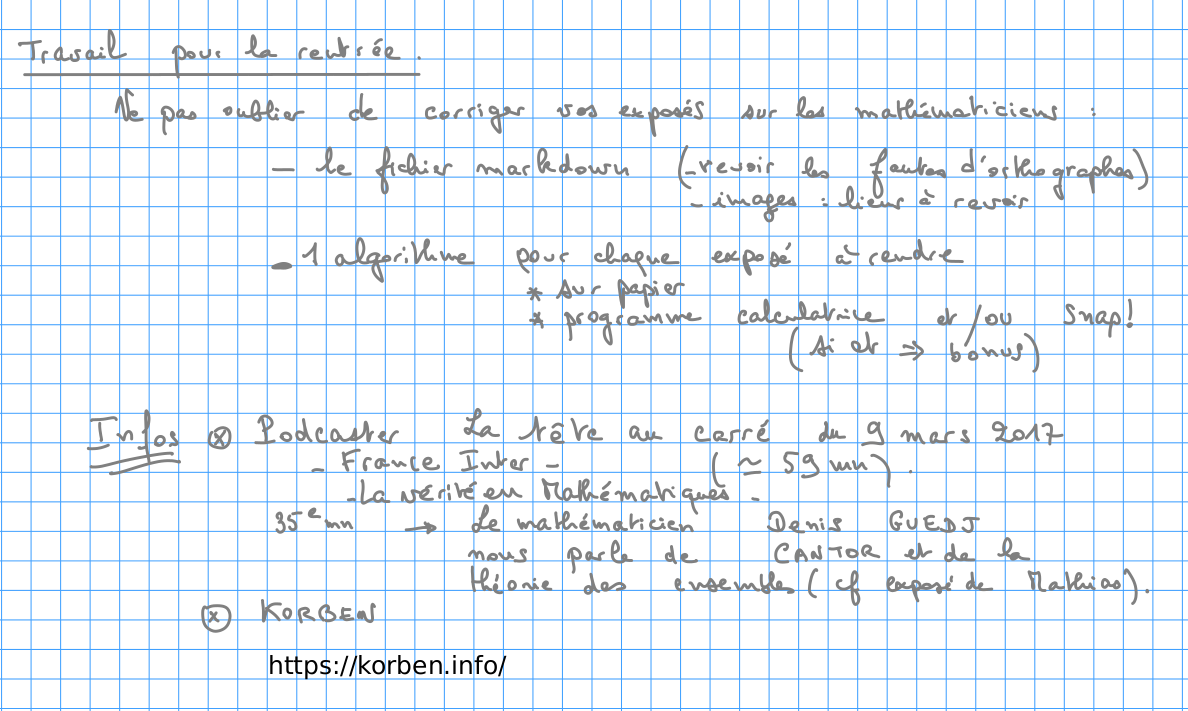 Travail pour la rentrée.
Ne pas oublier de corriger vos exposés sur les mathématiciens :
- le fichier markdown (- revoir les fautes d'orthographes)
- images : liens à revoir
- 1 algorithme pour chaque exposé à rendre
* sur papier
* programme calculatrice et/ou Snap!
(si et ⇒ bonus)
Infos ⊗ Podcaster La tête au carré du 9 mars 2017
- France Inter - (≃ 59 mn).
- La vérité en Mathématiques -
35e mn → Le mathématicien Denis GUEDJ
nous parle de CANTOR et de la
théorie des ensembles (cf exposé de Mathias).
⊗ KORBEN
https://korben.info/